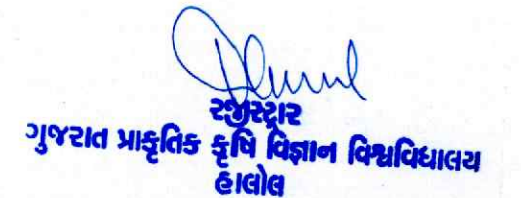 રજીસ્ટ્રાર
ગુજરાત પ્રાકૃતિક કૃષિ વિજ્ઞાન વિશ્વવિધાલય
હાલોલ